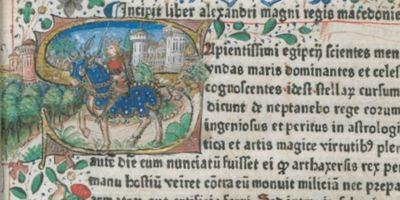 Incipit liber alexandri magni regis macedonie
apientissimi egipcij scientes men
yndas maris dominantes et celes
cognoscentes id est stellarum cursum
dicunt de neptanebo rege eorum
ingeniosus et peritus in astrologi
tica et artis magice virtutibus plen
aute die cum nunciatum fuisset ei quod arthaxersis rex per
manu hostium veniret contra eum monuit miliciam nec prepa